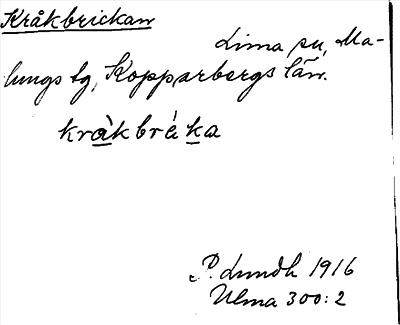 Kråkbrickan
Lima sn, Ma-
lungs tg, Kopparbergs län.
kràkbréka
P. Lundh 1916
Ulma 300:2